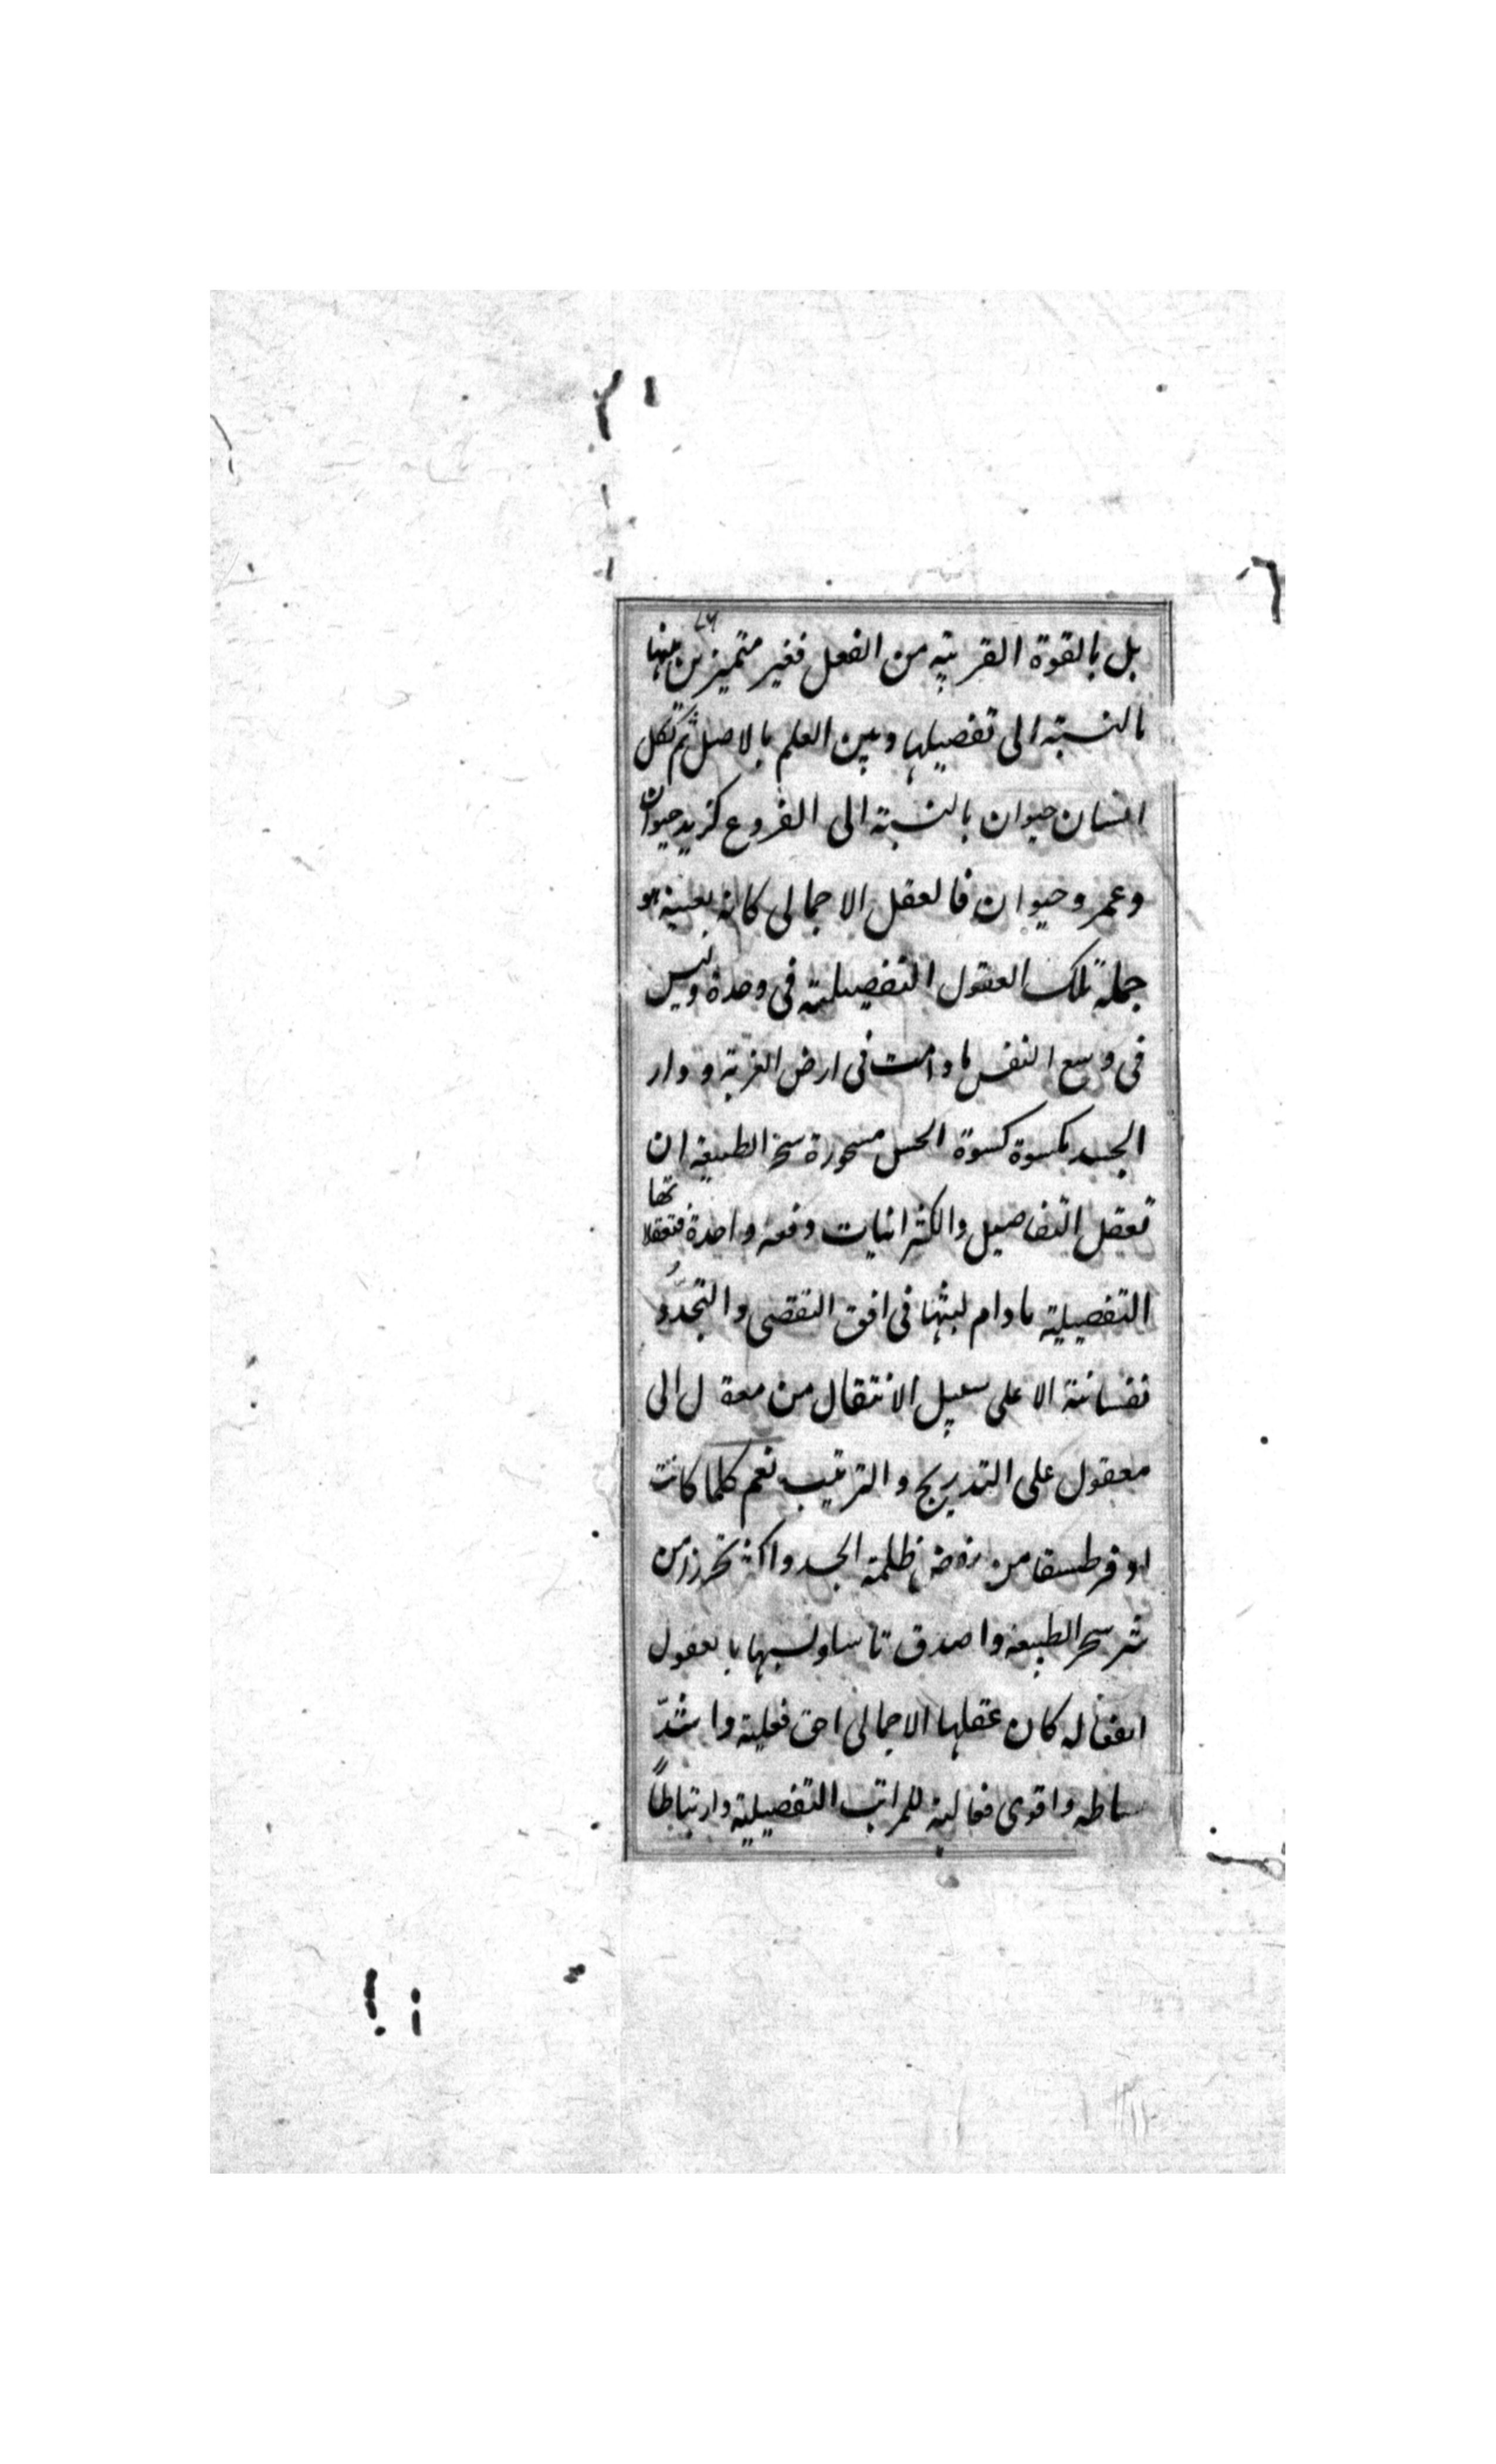 بل بالقوة القريبة من الفعل فغير متميز بين منها
بالنسبة الى تفصيلها وبين العلم بالاصل ثم لكل
انسان حيوان بالنسبة الى الفروع كزيد حيوان
وعمرو حيوان فالعقل الاجمالى كانه بعينه هو
جملة تلك العقول التفصيلية فى وحدة وليس
فى وسع النفس ما دامت فى ارض الغربة ودار
الجسد مكسوة كسوة الحس مسحورة سحر الطبيعة ان
تعقل التفاصيل والكثرانيات دفعة واحدة فتعقلاتها
التفصيلية مادام لبثها فى افق التقضى والتجدد
نفسانية الا على سبيل الانتقال من معقول الى
معقول على التدريج والترتيب نعم كلما كانت
اوفر من ظلمة الجسد واكثر تحرزا من
شر سحر الطبيعة واصدق بالعقول
الفعالة كان عقلها الاجمالى احق فعلية واشد
بساطة واقوى فعالية للمراتب التفصيلية وارتباطا